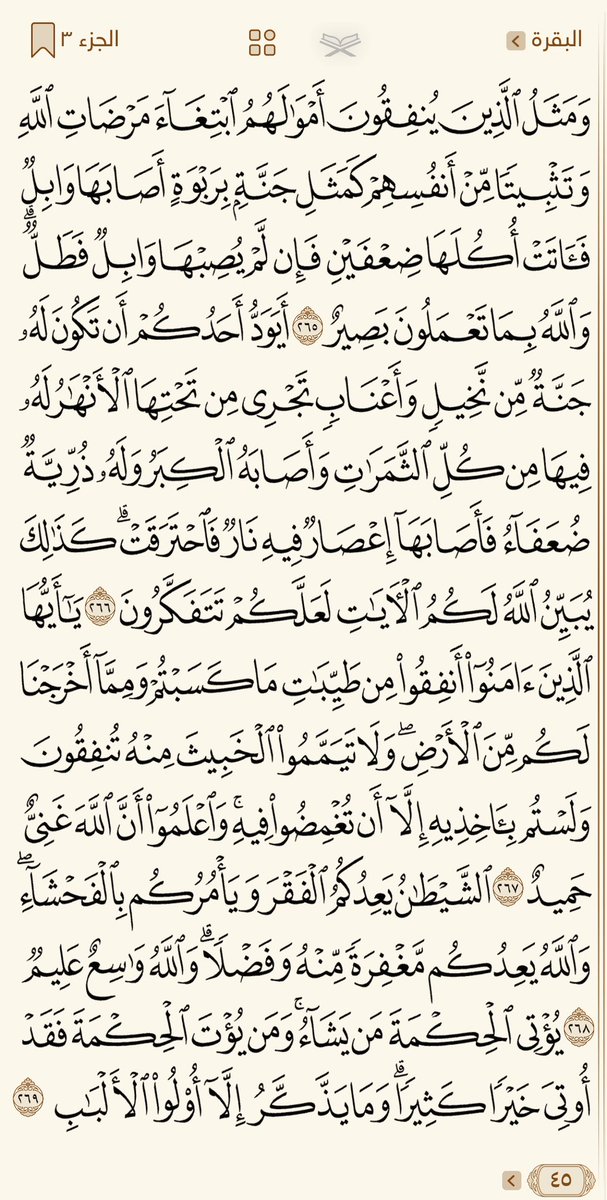 البقرة
الجزء ٣
وَمَثَلُ ٱلَّذِينَ يُنفِقُونَ أَمْوَٰلَهُمُ ٱبْتِغَآءَ مَرْضَاتِ ٱللَّهِ
وَتَثْبِيتًا مِّنْ أَنفُسِهِمْ كَمَثَلِ جَنَّةٍۭ بِرَبْوَةٍ أَصَابَهَا وَابِلٌ
فَـَٔاتَتْ أُكُلَهَا ضِعْفَيْنِ فَإِن لَّمْ يُصِبْهَا وَابِلٌ فَطَلٌّ ۗ
وَٱللَّهُ بِمَا تَعْمَلُونَ بَصِيرٌ ٢٦٥ أَيَوَدُّ أَحَدُكُمْ أَن تَكُونَ لَهُۥ
جَنَّةٌ مِّن نَّخِيلٍ وَأَعْنَابٍ تَجْرِى مِن تَحْتِهَا ٱلْأَنْهَٰرُ لَهُۥ
فِيهَا مِن كُلِّ ٱلثَّمَرَٰتِ وَأَصَابَهُ ٱلْكِبَرُ وَلَهُۥ ذُرِّيَّةٌ
ضُعَفَآءُ فَأَصَابَهَآ إِعْصَارٌ فِيهِ نَارٌ فَٱحْتَرَقَتْ ۗ كَذَٰلِكَ
يُبَيِّنُ ٱللَّهُ لَكُمُ ٱلْـَٔايَٰتِ لَعَلَّكُمْ تَتَفَكَّرُونَ ٢٦٦ يَٰٓأَيُّهَا
ٱلَّذِينَ ءَامَنُوٓا۟ أَنفِقُوا۟ مِن طَيِّبَٰتِ مَا كَسَبْتُمْ وَمِمَّآ أَخْرَجْنَا
لَكُم مِّنَ ٱلْأَرْضِ ۖ وَلَا تَيَمَّمُوا۟ ٱلْخَبِيثَ مِنْهُ تُنفِقُونَ
وَلَسْتُم بِـَٔاخِذِيهِ إِلَّآ أَن تُغْمِضُوا۟ فِيهِ ۚ وَٱعْلَمُوٓا۟ أَنَّ ٱللَّهَ غَنِىٌّ
حَمِيدٌ ٢٦٧ ٱلشَّيْطَٰنُ يَعِدُكُمُ ٱلْفَقْرَ وَيَأْمُرُكُم بِٱلْفَحْشَآءِ ۖ
وَٱللَّهُ يَعِدُكُم مَّغْفِرَةً مِّنْهُ وَفَضْلًا ۗ وَٱللَّهُ وَٰسِعٌ عَلِيمٌ
٢٦٨ يُؤْتِى ٱلْحِكْمَةَ مَن يَشَآءُ ۚ وَمَن يُؤْتَ ٱلْحِكْمَةَ فَقَدْ
أُوتِىَ خَيْرًا كَثِيرًا ۗ وَمَا يَذَّكَّرُ إِلَّآ أُو۟لُوا۟ ٱلْأَلْبَٰبِ ٢٦٩
٤٥